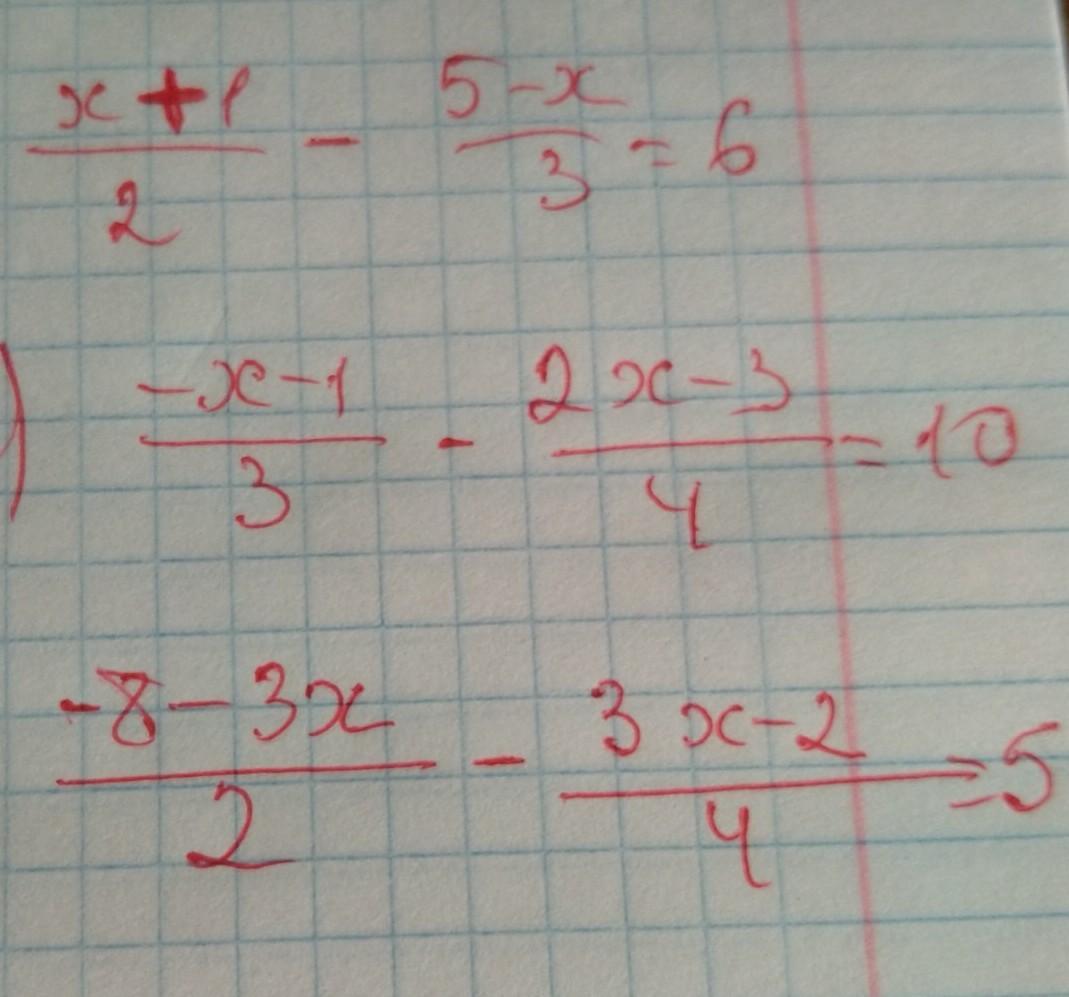 x+1/2 - 5-x/3 = 6
) -x-1/3 - 2x-3/4 = 10
-8-3x/2 - 3x-2/4 = 5